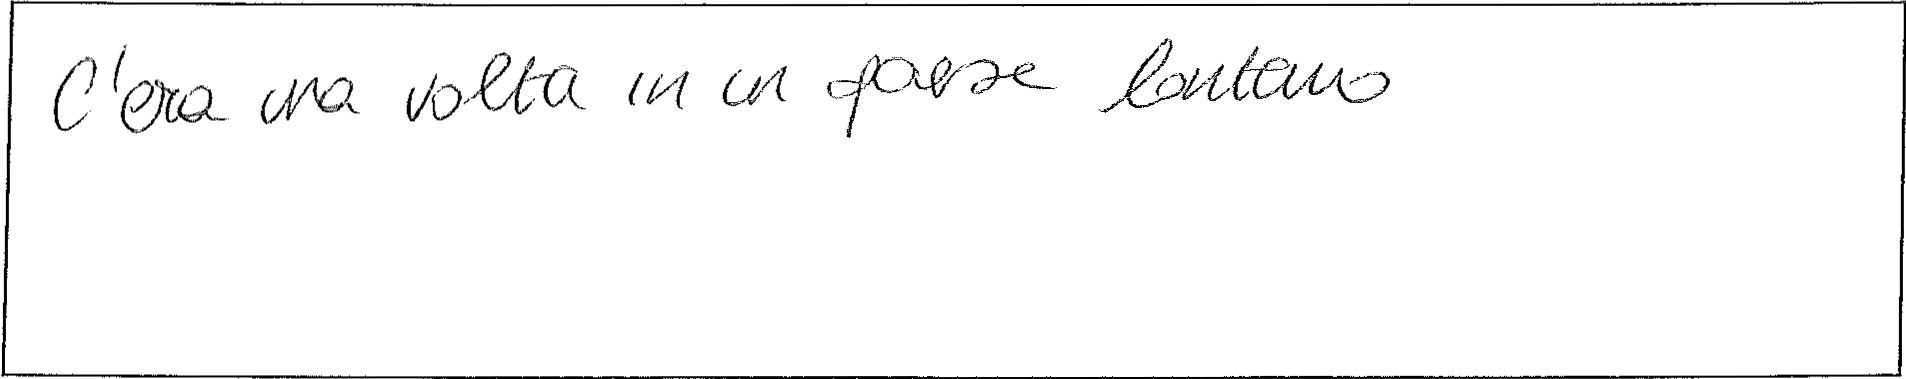 C'era una volta in un paese lontano